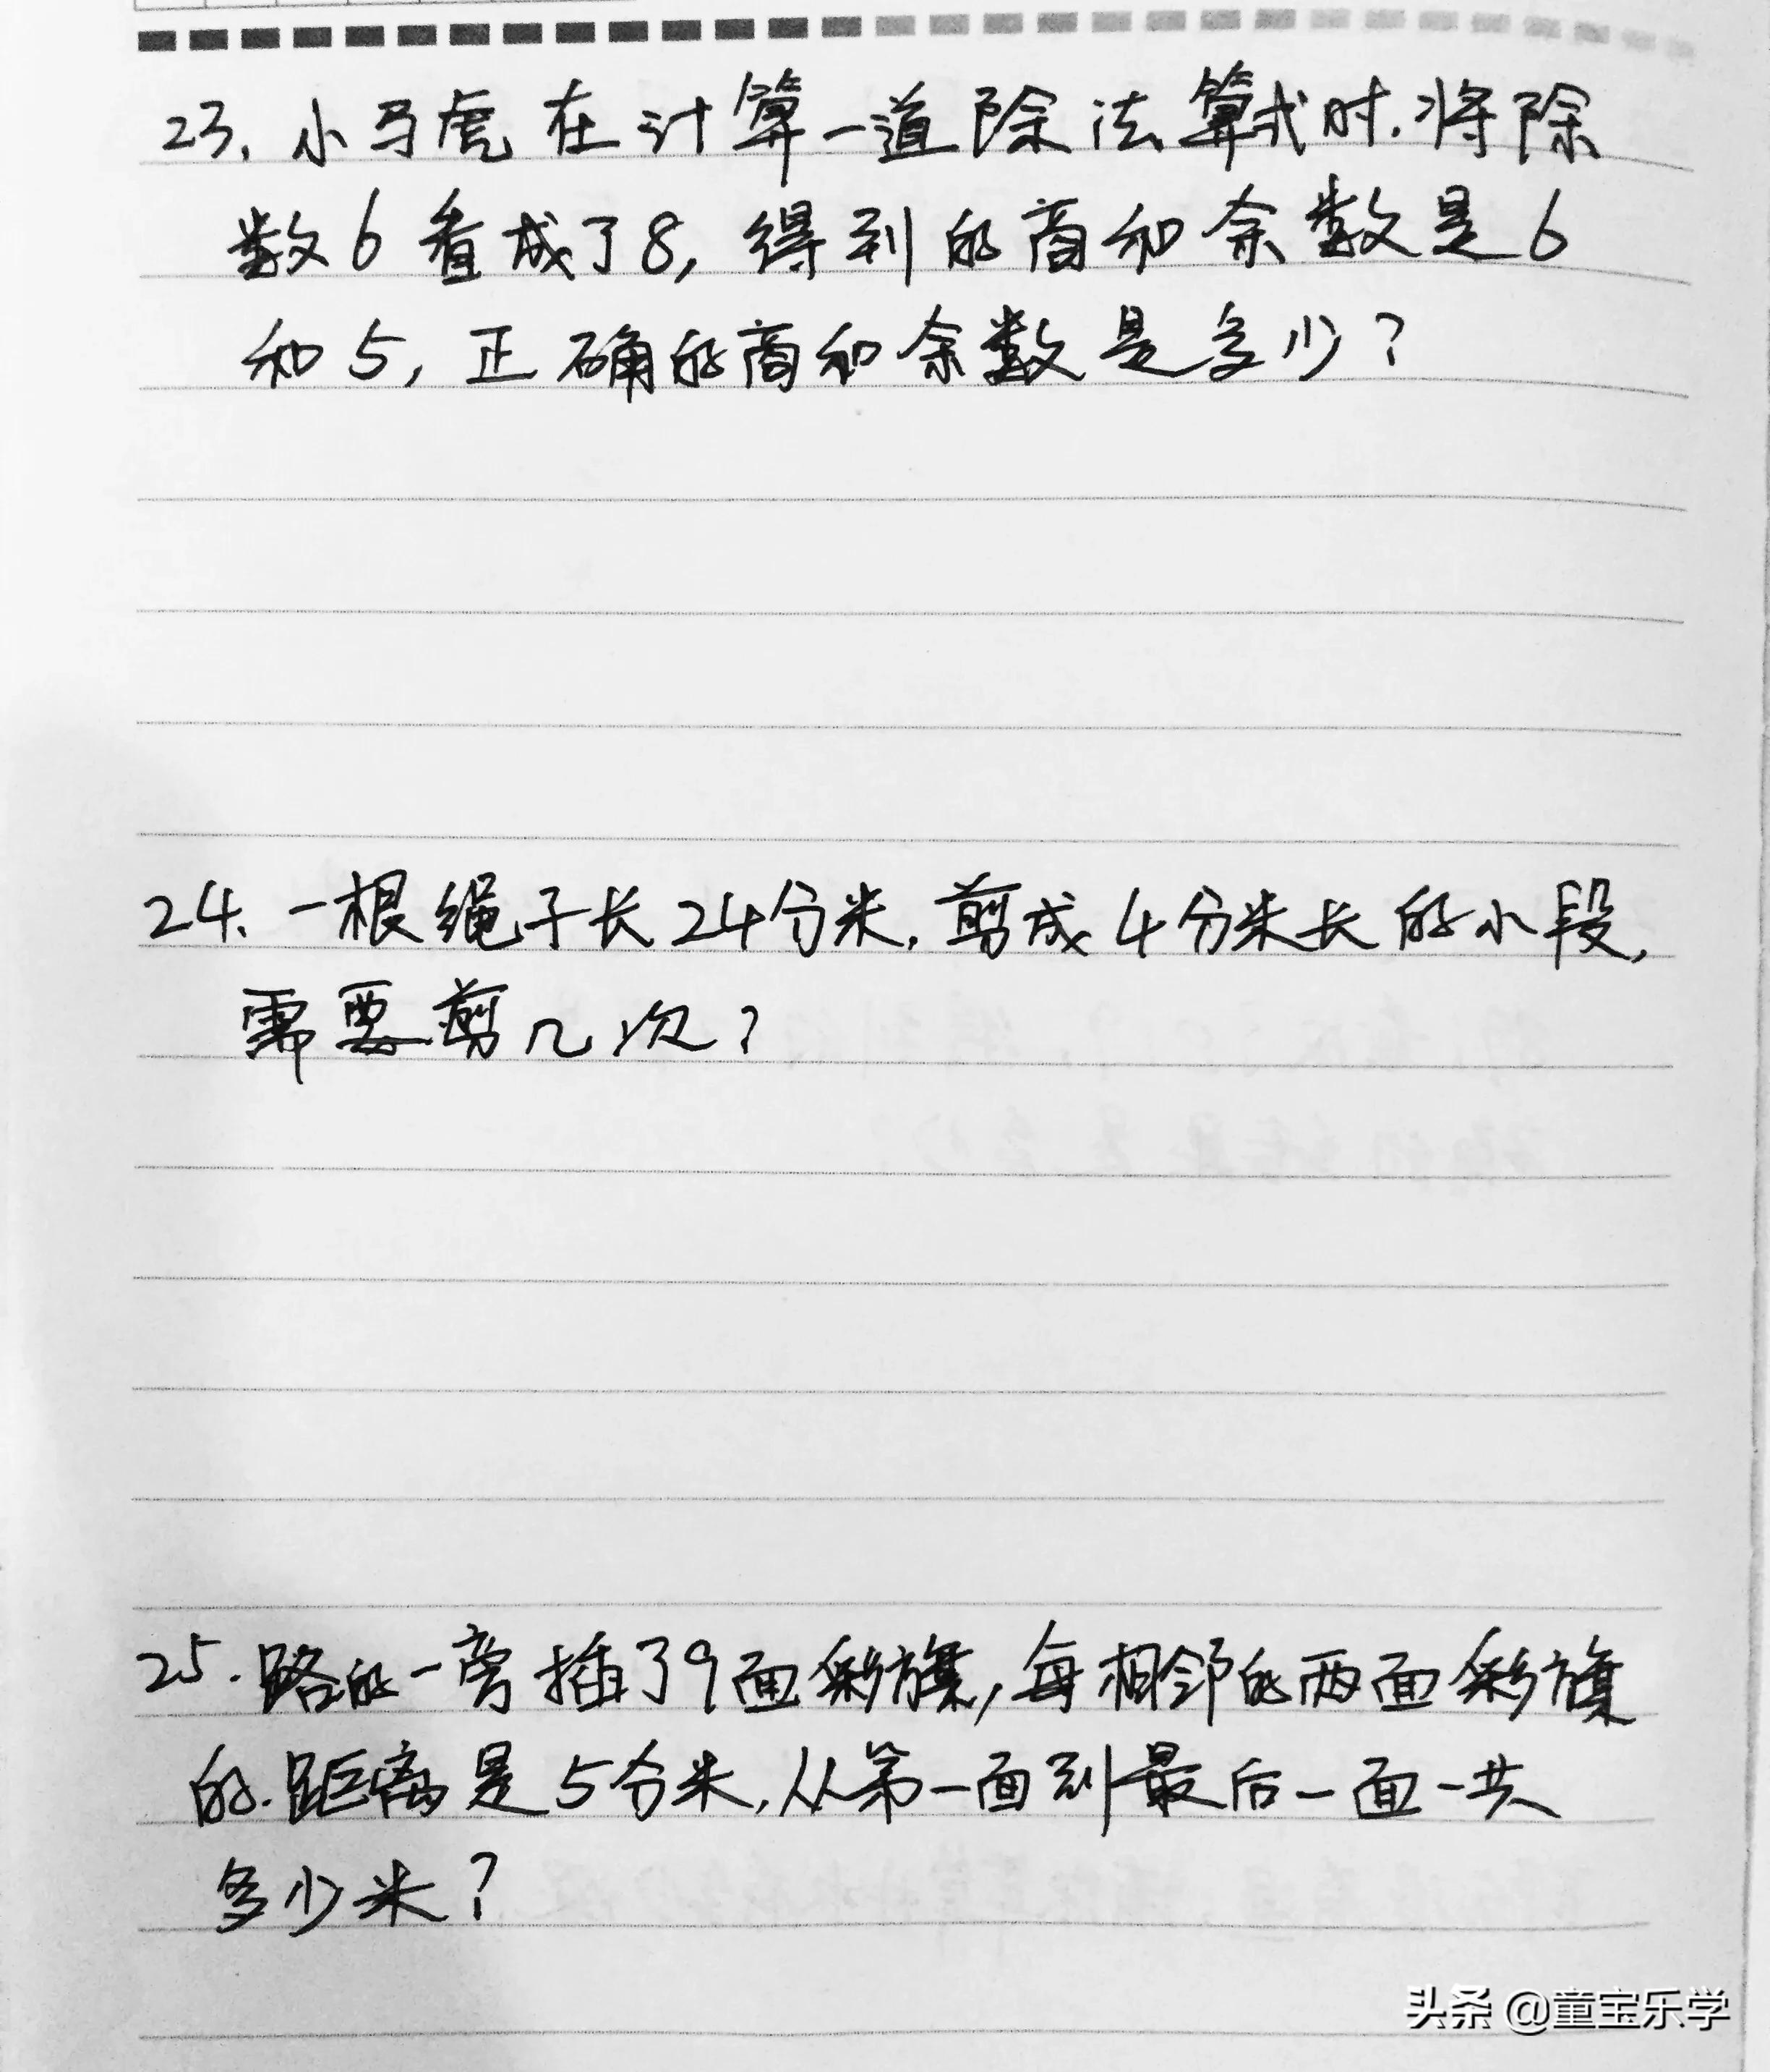 23、小马虎在计算一道除法算式时.将除
数6看成了8,得到的商和余数是6
和5,正确的商和余数是多少?
24、一根绳子长24分米,剪成4分米长的小段,
需要剪几次?
25.路的一旁插了9面彩旗,每相邻的两面彩旗
的.距离是5分米,从第一面到最后一面一共
多少米?
头条 @童宝乐学